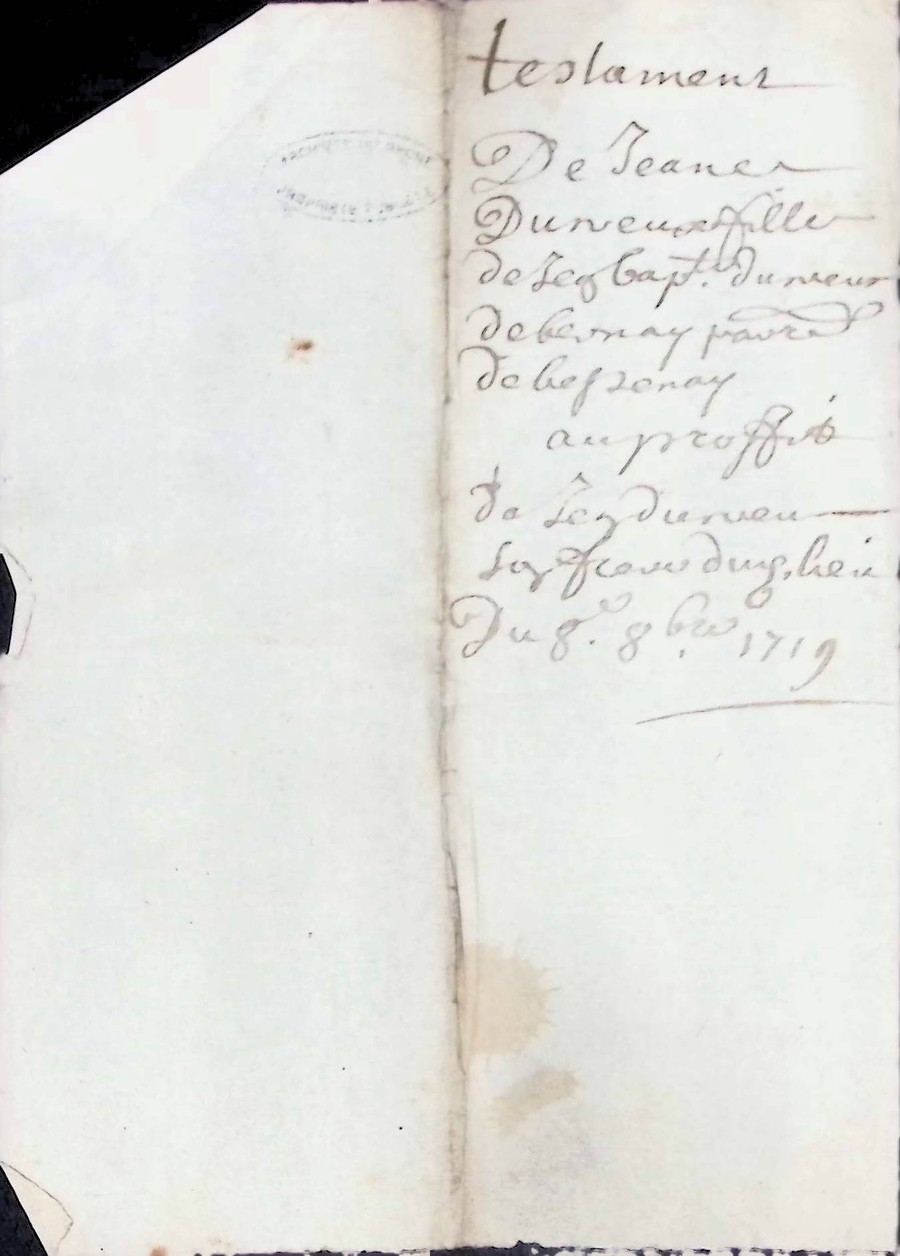 testament
De Jeane
Durveux fille
de Jeã bapt.e durveux
de bernay parr.e
de bessenay
au proffit
de Jeã durveu
son frere dung lieu
Du 8.e 8.bre 1719